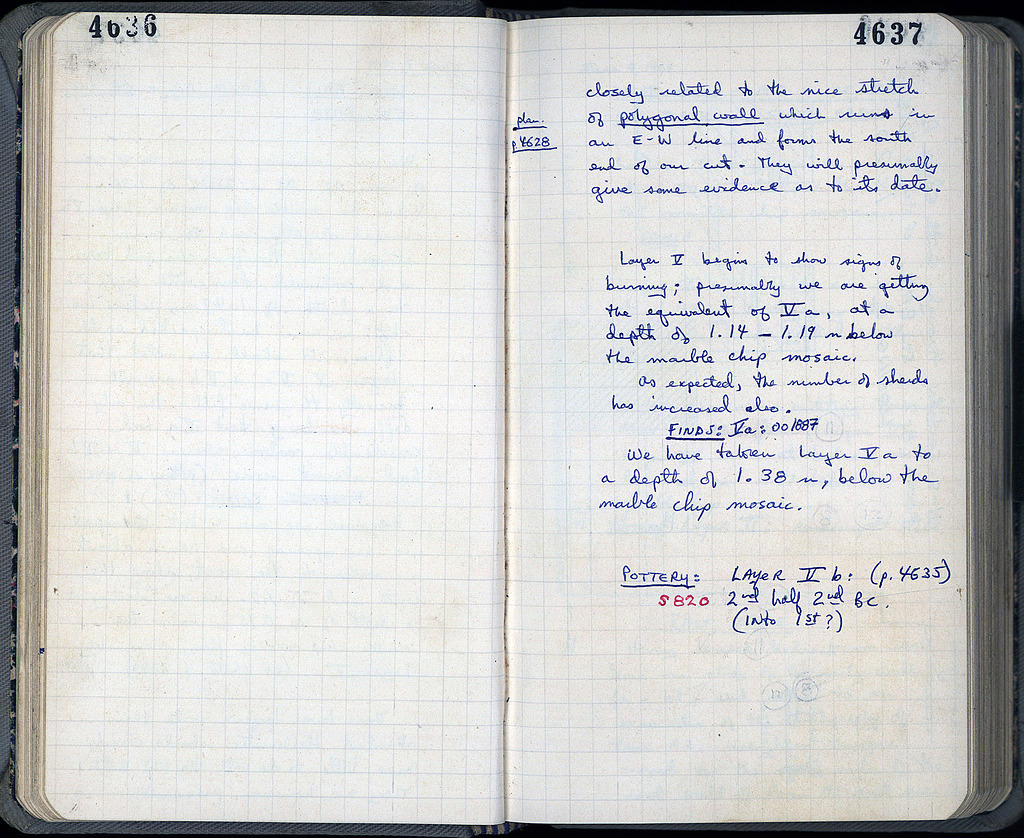 4636
4637
closely related to the nice stretch
plan.
p 4628
of polygonal wall which runs in
an E-W line and forms the south
end of our cut. They will presumably
give some evidence as to its date.
Layer V begins to show signs of
burning; presumably we are getting
the equivalent of Va, at a
depth of 1.14 – 1.19 m below
the marble chip mosaic.
As expected, the number of sherds
has increased also.
FINDS: Va: 001887
We have taken Layer Va to
a depth of 1.38 m, below the
marble chip mosaic.
POTTERY: LAYER IV b: (p. 4635)
S820 2nd half 2nd BC.
(INto 1st?)